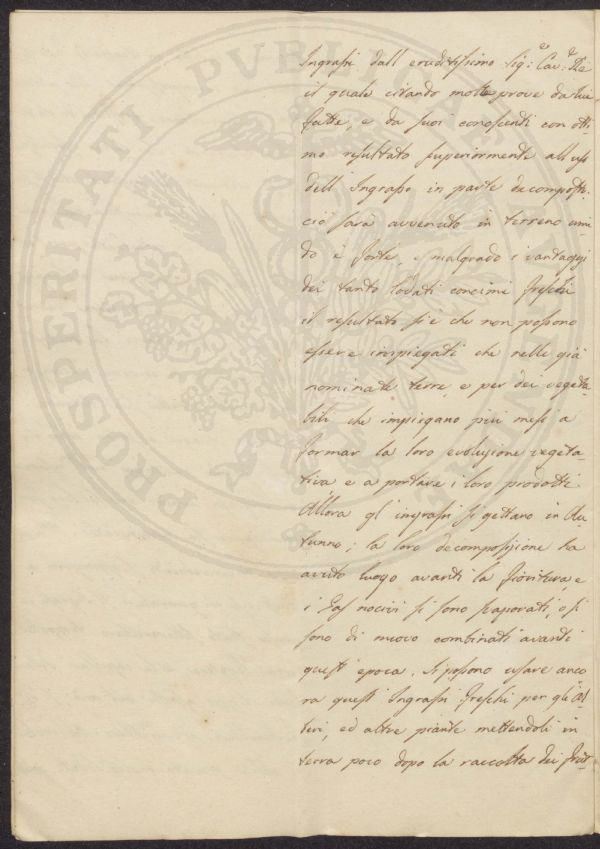 PROSPERITATI PVBLICAE
Ingrassi dall eruditissimo Sig:e Cav:e Re
il quale citando molte prove da lui
fatte, e da suoi conoscenti con otti-
mo resultato superiormente all uso
dell Ingrasso in parte decomposto.
ciò sarà avvenuto in terreno umi-
do è forte, e malgrado i vantaggi
dei tanto lodati concimi freschi
il resultato si è che non possono
essere impiegati che nelle già
nominate terre, e per dei vegeta-
bili che impiegano più mesi a
formar la loro evoluzione vegeta-
tiva e a portare i loro prodotti.
Allora gl ingrassi si gettano in Au-
tunno; la loro decomposizione ha
avuto luogo avanti la fioritura, e
i Gas nocivi si sono svaporati, o si
sono di nuovo combinati avanti
quest epoca. Si possono usare anco
ra questi Ingrassi freschi per gli
ed altre piante mettendoli in
terra poco dopo la raccolta dei frut